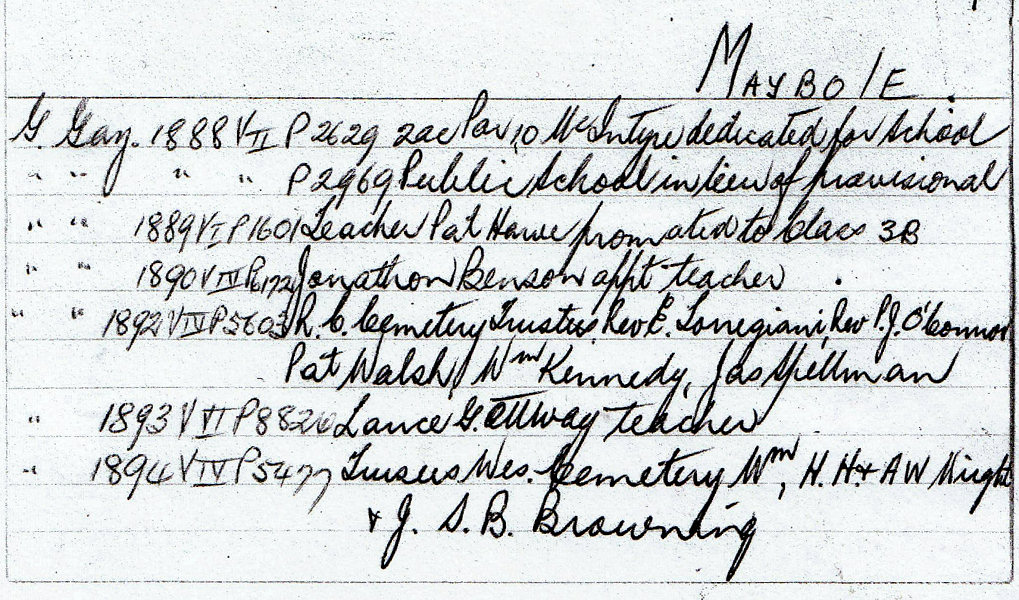 MAYBOLE.
G. Gay. 1888 V II P 2629 2ac Por 10 McIntyre dedicated for School
" " " " P 2969 Public School in lieu of provisional
" " 1889 V I P 1601 Teacher Pat Howe promoted to Class 3B
" " 1890 V IV P Jonathon Benson appt teacher
" " 1892 V IV P 5603 R. C. Cemetery Trustees Rev E. Torregiani, Rev P.J. O'Connor
Pat Walsh, Wm Kennedy, Jas Spellman
" 1893 V VI P 8826 Lance G. Ottway teacher
" 1894 V IV P 5477 Trusees Wes. Cemetery Wm, H. H. & A W Wright
& J. S. B. Browning